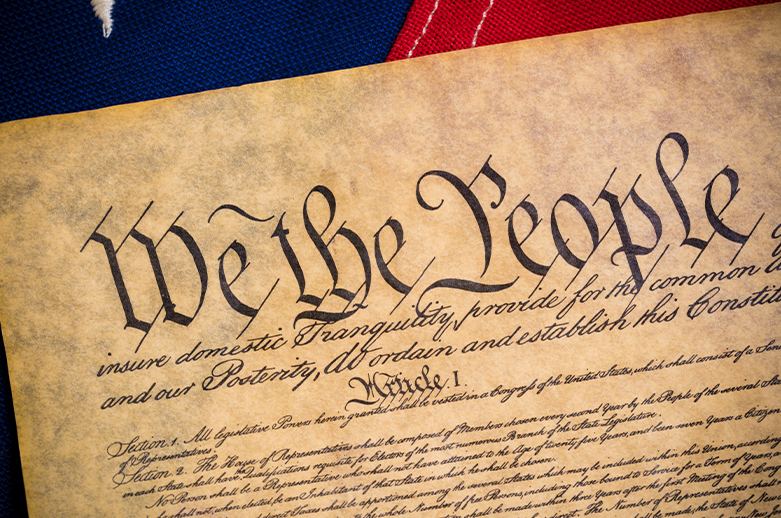 We the People
insure domestic Tranquility, provide for the common
and our Posterity, do ordain and establish this Constit
Article. I.
Section 1. All legislative Powers herein granted shall be vested in a Congress of the United States, which shall consist of a Sena
of Representatives.
Section 2. The House of Representatives shall be composed of Members chosen every second Year by the People of the several States
in each State shall have the Qualifications requisite for Electors of the most numerous Branch of the State Legislature.
No Person shall be a Representative who shall not have attained to the Age of twenty five Years, and been seven Years a Citizen
shall not, when elected, be an Inhabitant of that State in which he shall be chosen.
direct Taxes shall be apportioned among the several States which may be included within this Union, according
to the whole Number of free Persons, including those bound to Service for a Term of Years, an
shall be made within three Years after the first Meeting of the Con
The Number of Representatives shall
shall be made, the State of New